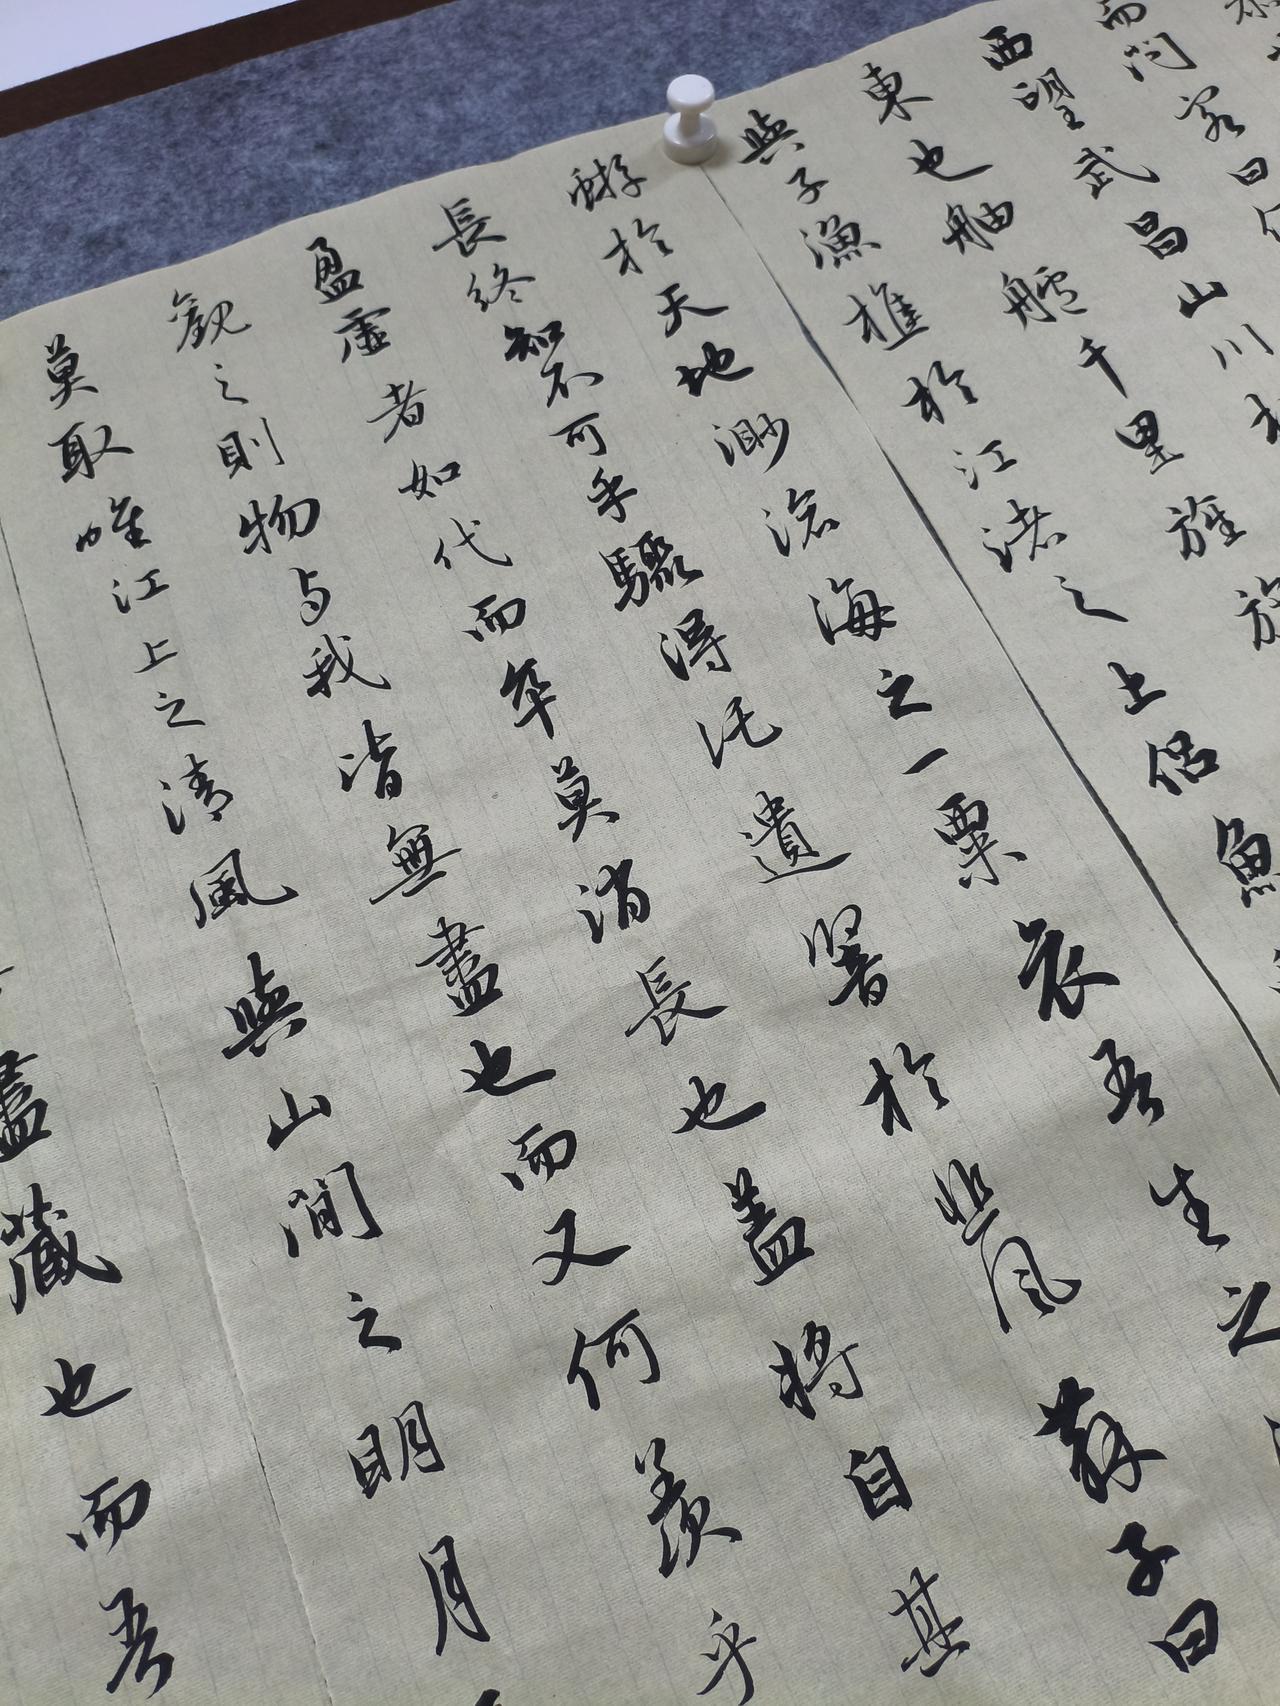 而問客曰何
西望武昌山川相
東也舳艫千里旌旗
與子漁樵於江渚之上侶魚
蝣於天地渺滄海之一粟哀吾生之
長終知不可乎驟得託遺響於悲風蘇子曰
盈虛者如代而卒莫消長也蓋將自其
觀之則物与我皆無盡也而又何羨乎
莫取唯江上之清風與山間之明月
盡藏也而吾